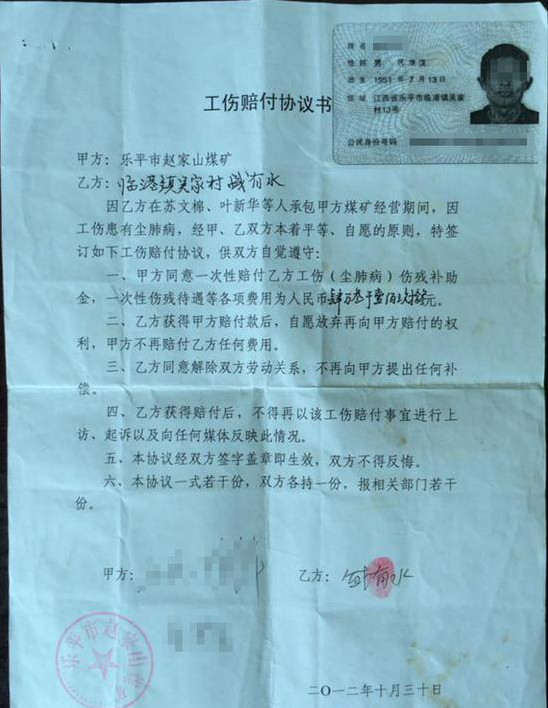 姓名
性别 男 民族 汉
出生 1951 年 7 月 13 日
住址 江西省乐平市临港镇吴家
村13号
公民身份号码
工伤赔付协议书
甲方：乐平市赵家山煤矿
乙方：临港镇吴家村 有水
因乙方在苏文棉、叶新华等人承包甲方煤矿经营期间，因
工伤患有尘肺病，经甲、乙双方本着平等、自愿的原则，特签
订如下工伤赔付协议，供双方自觉遵守：
一、甲方同意一次性赔付乙方工伤（尘肺病）伤残补助
金，一次性伤残待遇等各项费用为人民币 元。
二、乙方获得甲方赔付款后，自愿放弃再向甲方赔付的权
利，甲方不再赔付乙方任何费用。
三、乙方同意解除双方劳动关系，不再向甲方提出任何补
偿。
四、乙方获得赔付后，不得再以该工伤赔付事宜进行上
访、起诉以及向任何媒体反映此情况。
五、本协议经双方签字盖章即生效，双方不得反悔。
六、本协议一式若干份，双方各持一份，报相关部门若干
份。
甲方：
乙方： 有水
乐平市赵家山
二〇一二年十月三十日